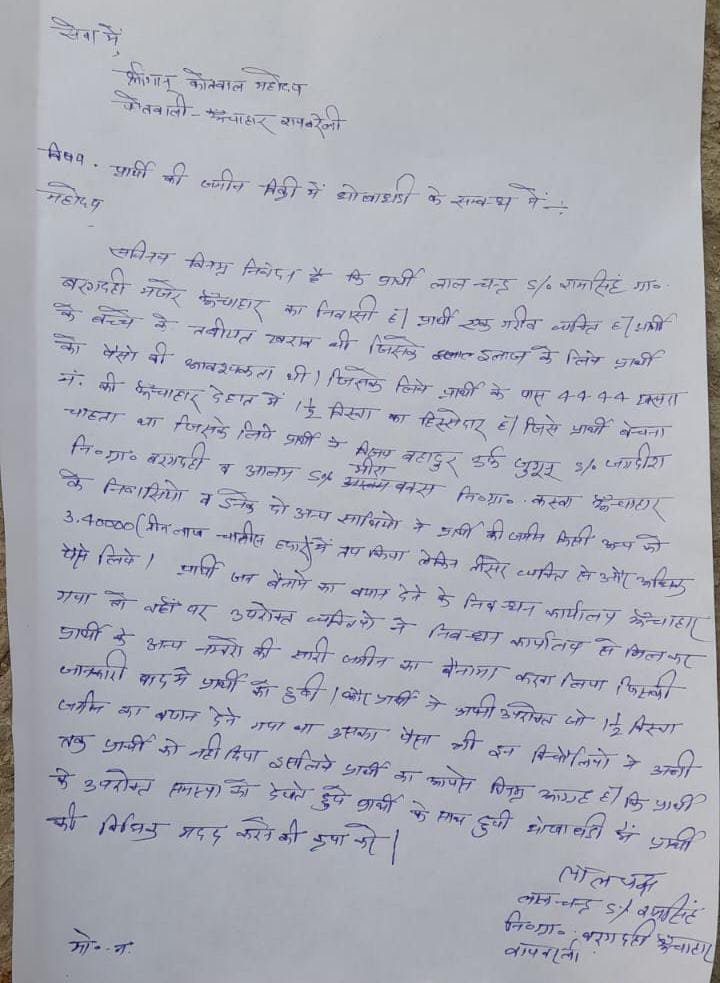 सेवा में,
श्रीमान् कोतवाल महोदय
कोतवाली - ऊँचाहार रायबरेली
विषय. प्रार्थी की जमीन बिक्री में धोखाधडी के सम्बन्ध में :-
महोदय
सविनय विनम्र निवेदन है कि प्रार्थी लाल चन्द्र S/० रामसिंह ग्रा०
बरगदही मजरे ऊँचाहार का निवासी है। प्रार्थी एक गरीब व्यक्ति है। प्रार्थी
के बच्चे के तबीयत खराब थी जिसके इलाज के लिये प्रार्थी
को पैसो की आवश्यकता थी। जिसके लिये प्रार्थी के पास 4444
नं. की ऊँचाहार देहात में 1½ बिस्वा का हिस्सेदार है। जिसे प्रार्थी बेचना
चाहता था जिसके लिये प्रार्थी ने विजय बहादुर उर्फ जुगुनू S/० जगदीश
नि०ग्रा० बरगदही व आलम S/० मौला बक्स नि०ग्रा०. कस्बा ऊँचाहार
के निवासियो व इनके दो अन्य साथियो ने प्रार्थी की जमीन किसी अन्य को
3.40000 (तीन लाख चालीस हजार) में तय किया लेकिन तीसरे व्यक्ति से और अधिक
पैसे लिये। प्रार्थी जब बैनामे का बयान देने के निबन्धन कार्यालय ऊँचाहार
गया तो वहाँ पर उपरोक्त व्यक्तियो ने निबन्धन कार्यालय से मिलकर
प्रार्थी के अन्य नम्बरो की सारी जमीन का बैनामा करा लिया जिसकी
जानकारी बाद में प्रार्थी को हुयी। और प्रार्थी ने अपनी उपरोक्त जो 1½ बिस्वा
जमीन का बयान देने गया था उसका पैसा भी इन बिचौलियो ने अभी
तक प्रार्थी को नही दिया इसलिये प्रार्थी का आपसे विनम्र आग्रह है। कि प्रार्थी
के उपरोक्त समस्या को देखते हुये प्रार्थी के साथ हुयी धोखाधडी में प्रार्थी
की विधिक मदद करने की कृपा करें।
लालचन्द्र
लाल चन्द्र S/० रामसिंह
नि०ग्रा०. बरगदही ऊँचाहार
रायबरेली
मो०. नं.